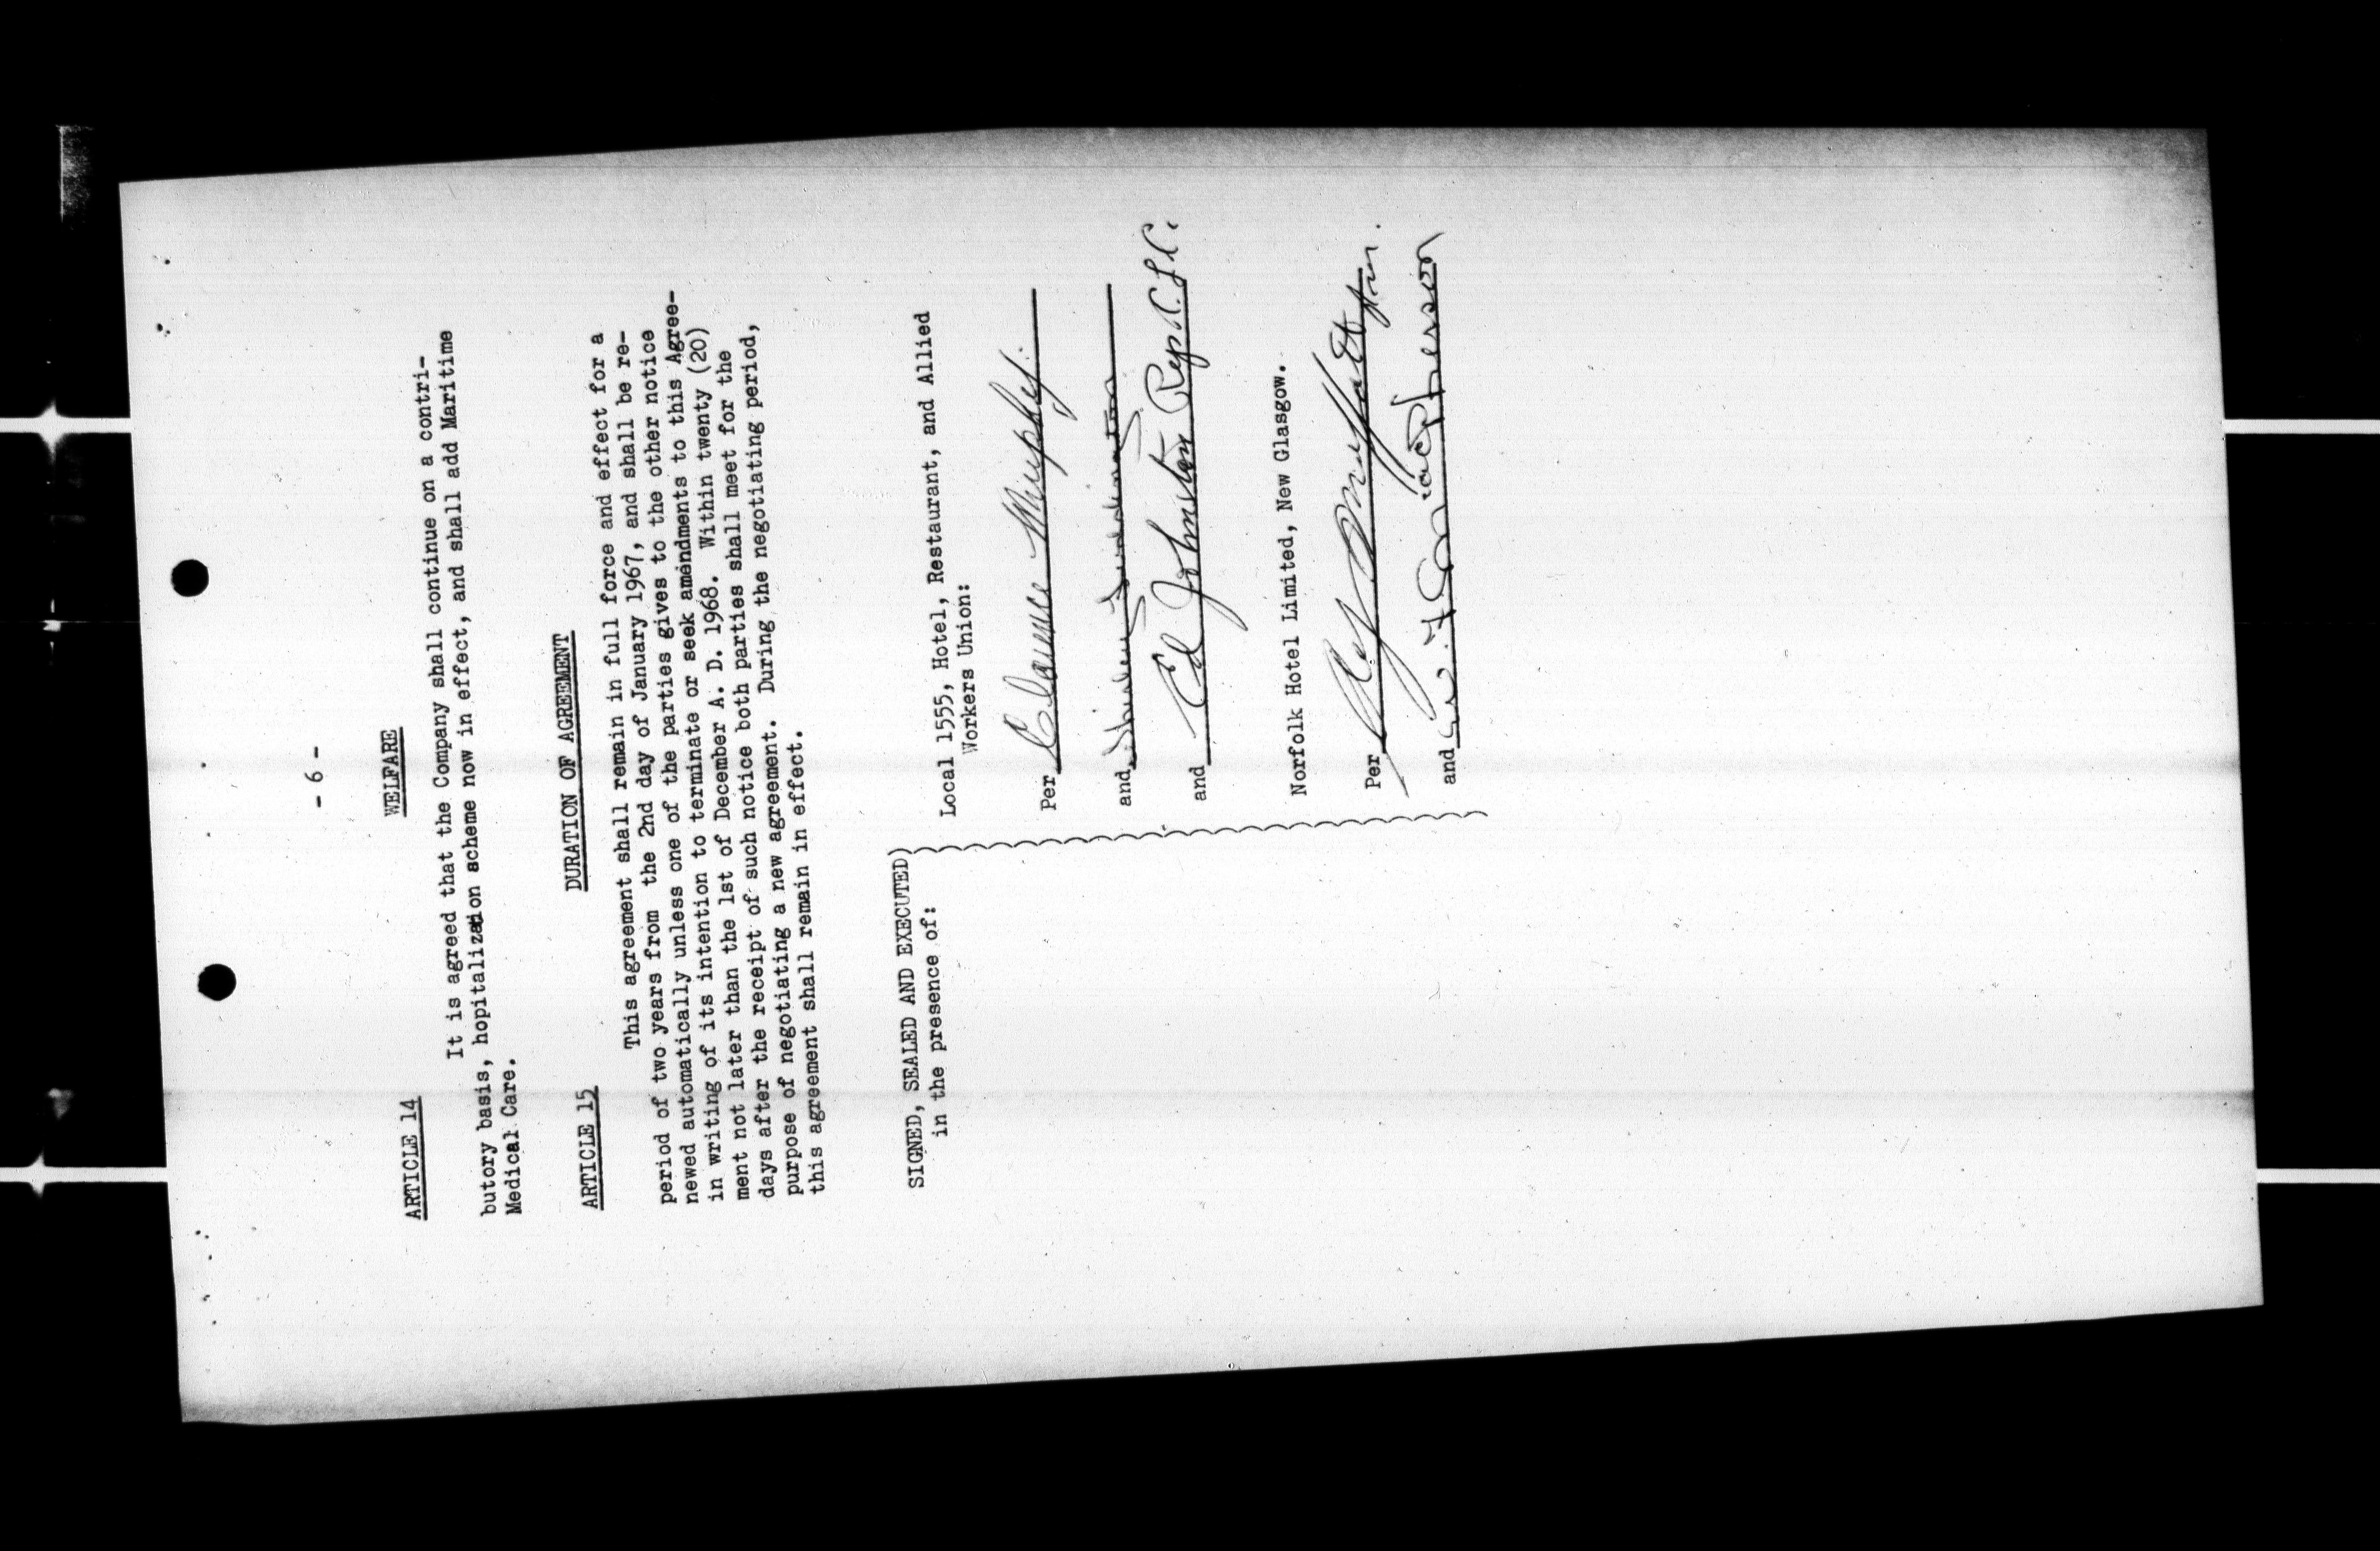 - 6 -
ARTICLE 14
WELFARE
It is agreed that the Company shall continue on a contri-
butory basis, hopitalization scheme now in effect, and shall add Maritime
Medical Care.
ARTICLE 15
DURATION OF AGREEMENT
This agreement shall remain in full force and effect for a
period of two years from the 2nd day of January 1967, and shall be re-
newed automatically unless one of the parties gives to the other notice
in writing of its intention to terminate or seek amendments to this Agree-
ment not later than the 1st of December A. D. 1968. Within twenty (20)
days after the receipt of such notice both parties shall meet for the
purpose of negotiating a new agreement. During the negotiating period,
this agreement shall remain in effect.
SIGNED, SEALED AND EXECUTED)
in the presence of:
Local 1555, Hotel, Restaurant, and Allied
Workers Union:
Per Clarence Murphy
and
and Ed Johnston Rep. C.L.C.
Norfolk Hotel Limited, New Glasgow.
Per
and MacPherson